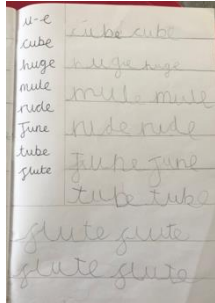 u-e
cube
huge
mule
rude
June
tube
flute
cube cube
huge huge
mule mule
rude rude
June June
tube tube
flute flute
flute flute